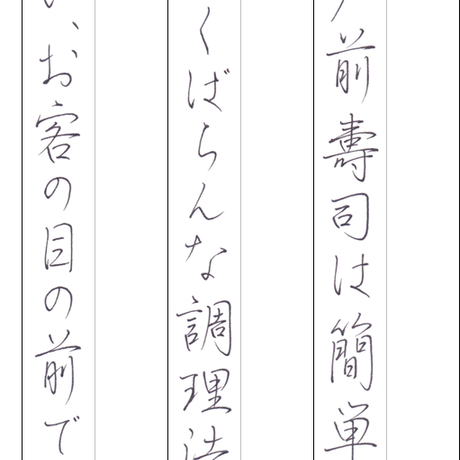 前壽司は簡単
くばらんな調理法
、お客の目の前で